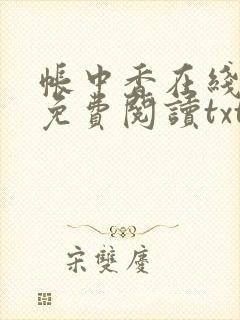 帳中香在綫
免費閱讀txt
宋雙慶